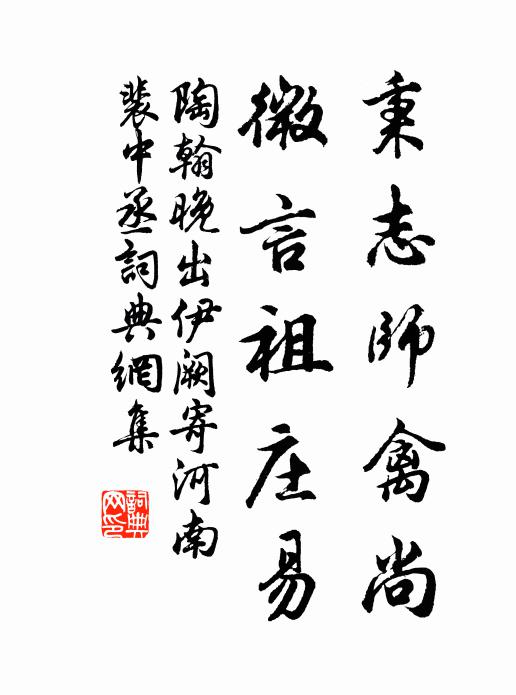 秉志師禽尚
微言祖庄易
陶翰晚出伊阙寄河南
裴中丞詞典網集
詞典
网印